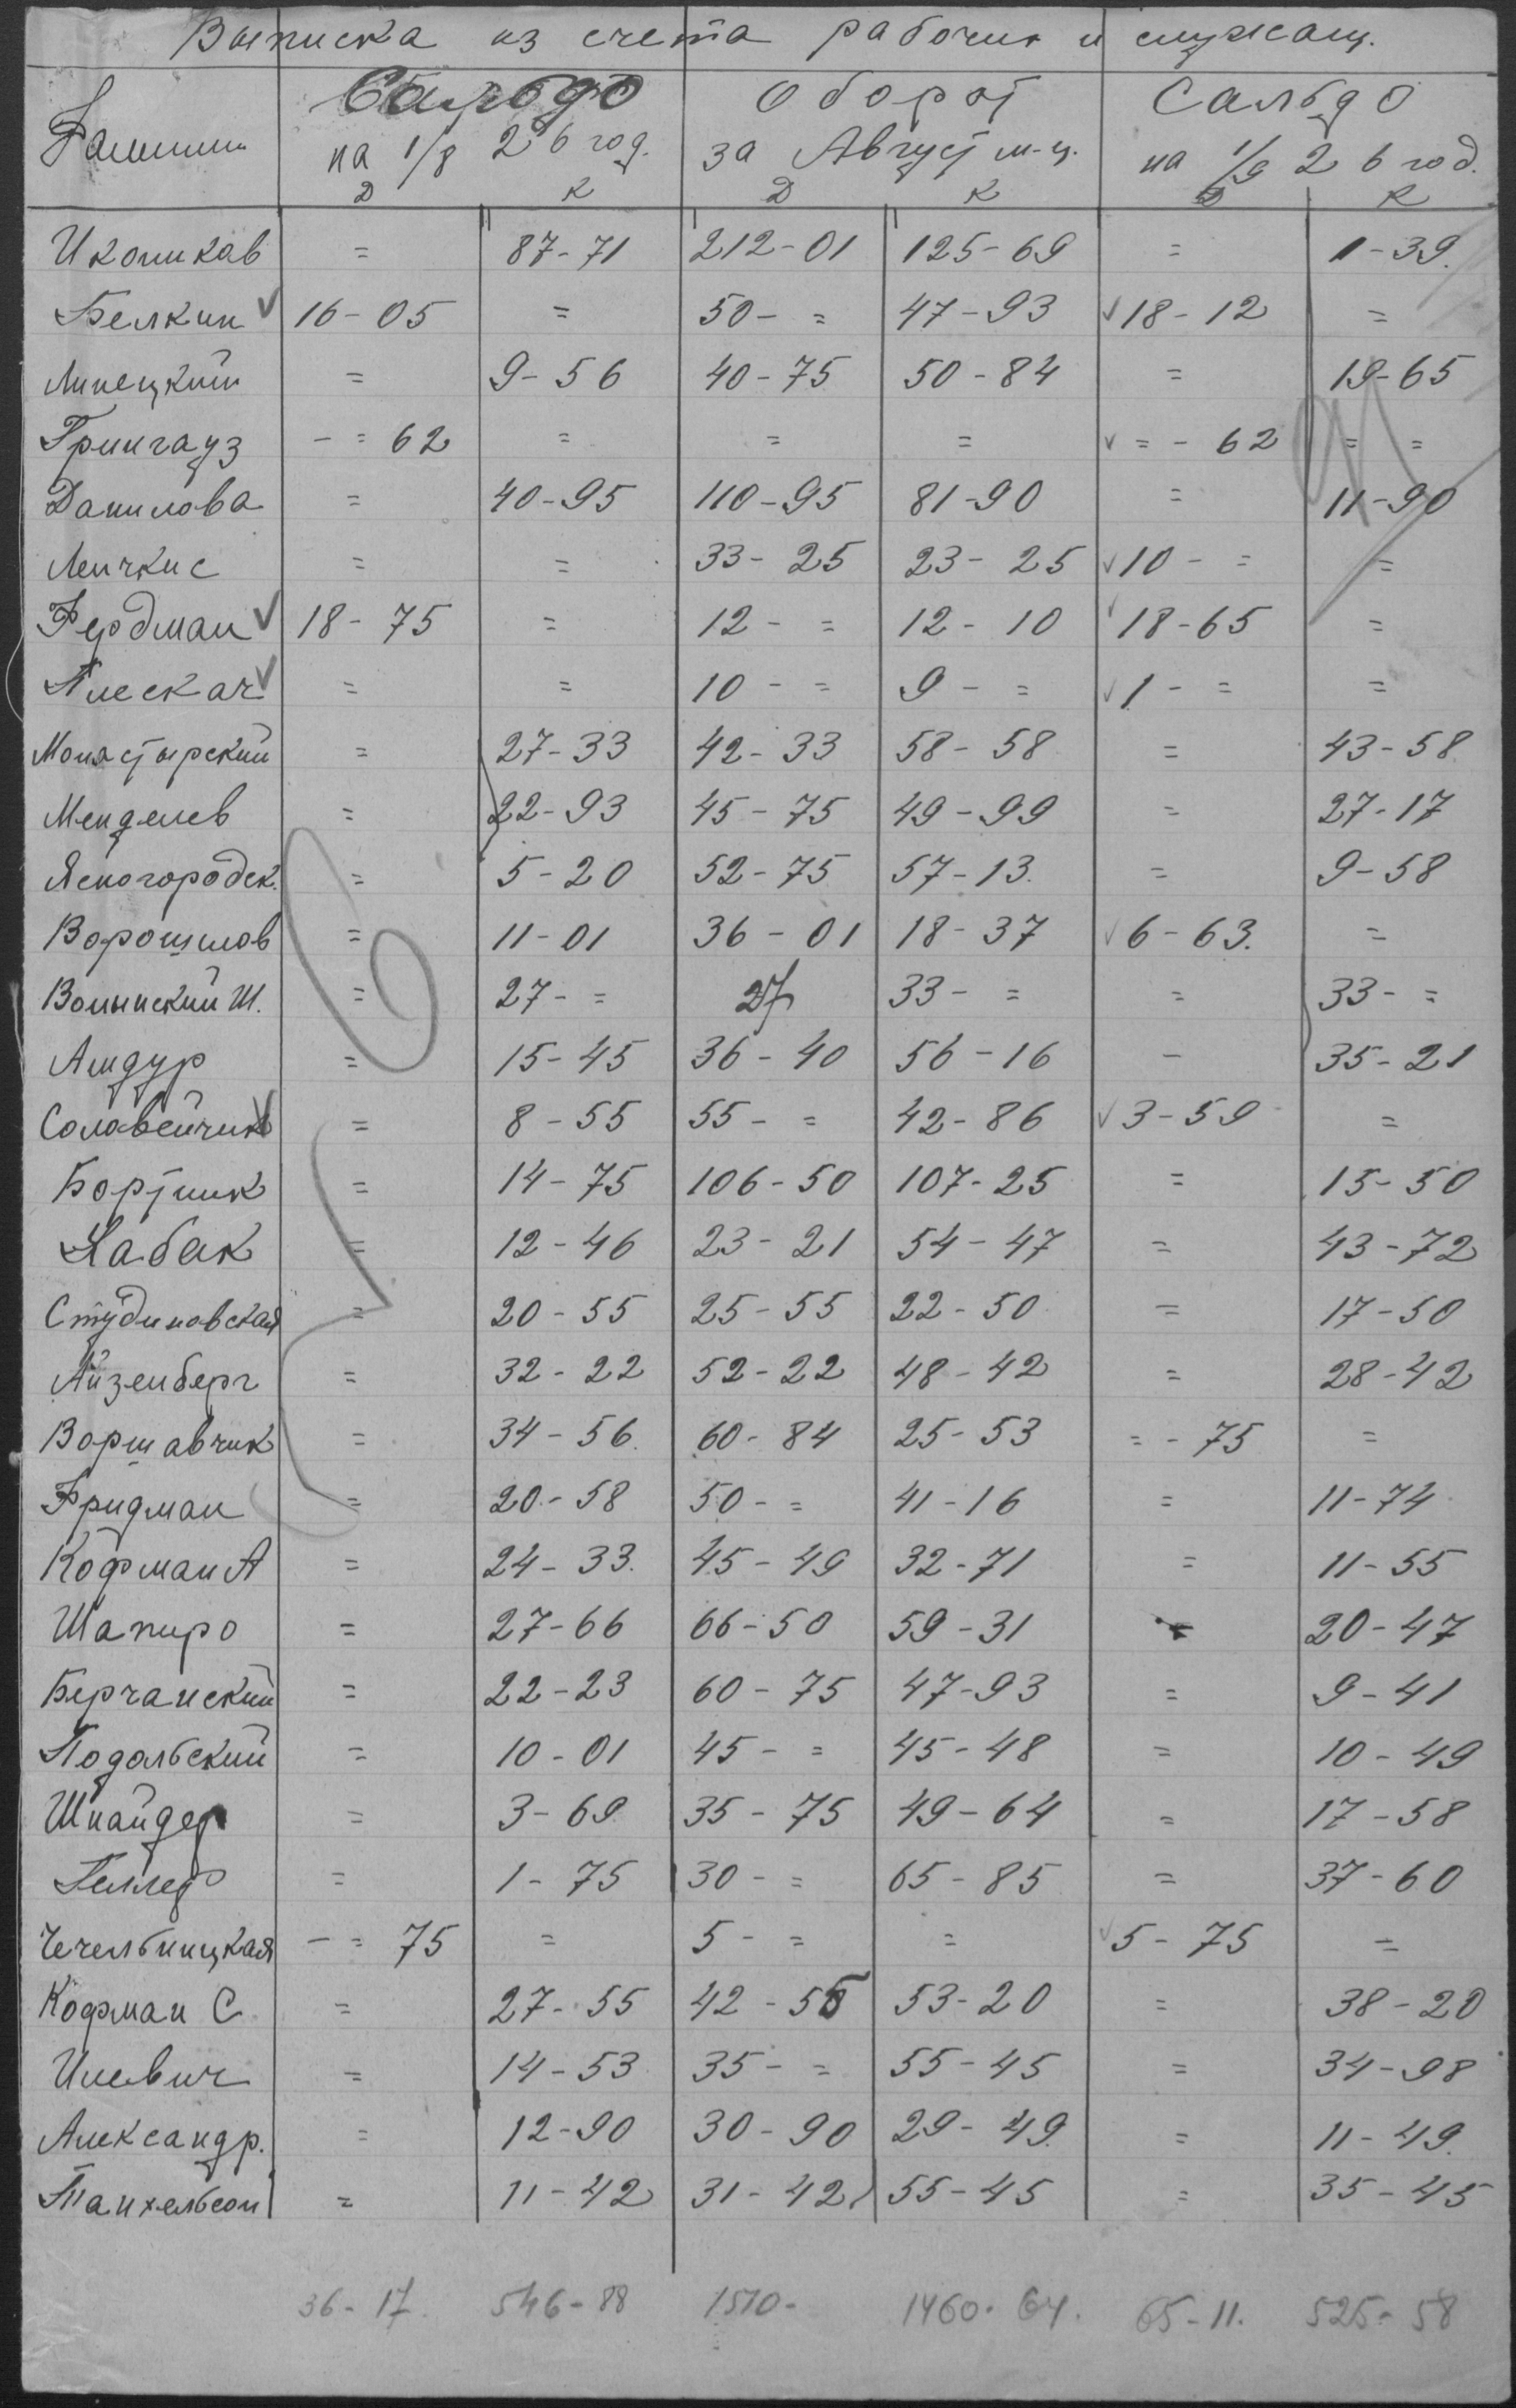 Выписка из счета рабочих и служащ.
Фамилии Сальдо Оборот Сальдо
на 1/8 26 год. за Август м-ц. на 1/9 26 год.
Д К Д К Д К
Иконикав = 87-71 212-01 125-69 = 1-39.
Белкин 16-05 = 50-= 47-93 18-12 =
Липецкий = 9-56 40-75 50-84 = 19-65
Грингауз -=62 = = = =-62 = =
Данилова = 40-95 110-95 81-90 = 11-90
Леичкис = = 33-25 23-25 10-= =
Фердман 18-75 = 12-= 12-10 18-65 =
Плескач = = 10-= 9-= 1-= =
Монастырский = 27-33 42-33 58-58 = 43-58
Менделев = 22-93 45-75 49-99 = 27-17
Ясногородск. = 5-20 52-75 57-13. = 9-58
Ворошилов = 11-01 36-01 18-37 6-63. =
Волынский Ш. = 27-= 27 33-= = 33-=
Амдур = 15-45 36-40 56-16 - 35-21
Солавейчик = 8-55 55-= 42-86 3-59 =
Бортник = 14-75 106-50 107-25 = 15-50
Хабак = 12-46 23-21 54-47 = 43-72
Студиновская = 20-55 25-55 22-50 = 17-50
Айзенберг = 32-22 52-22 48-42 = 28-42
Воршавчик = 34-56. 60-84 25-53 =-75 =
Фридман = 20-58 50-= 41-16 = 11-74
Кофман А = 24-33. 45-49 32-71 = 11-55
Шапиро = 27-66 66-50 59-31 20-47
Берчанский = 22-23 60-75 47-93 = 9-41
Подольский = 10-01 45-= 45-48 = 10-49
Шнайдер = 3-69 35-75 49-64 = 17-58
Геллер = 1-75 30-= 65-85 = 37-60
Чечельницкая -=75 = 5-= = 5-75 =
Кофман С = 27-55 42-55 53-20 = 38-20
Илевич = 14-53 35-= 55-45 = 34-98
Александр. = 12-90 30-90 29-49. = 11-49.
Танхельсон = 11-42 31-42 55-45 = 35-45
36-17. 546-88 1510- 1460-64. 65-11. 525-58